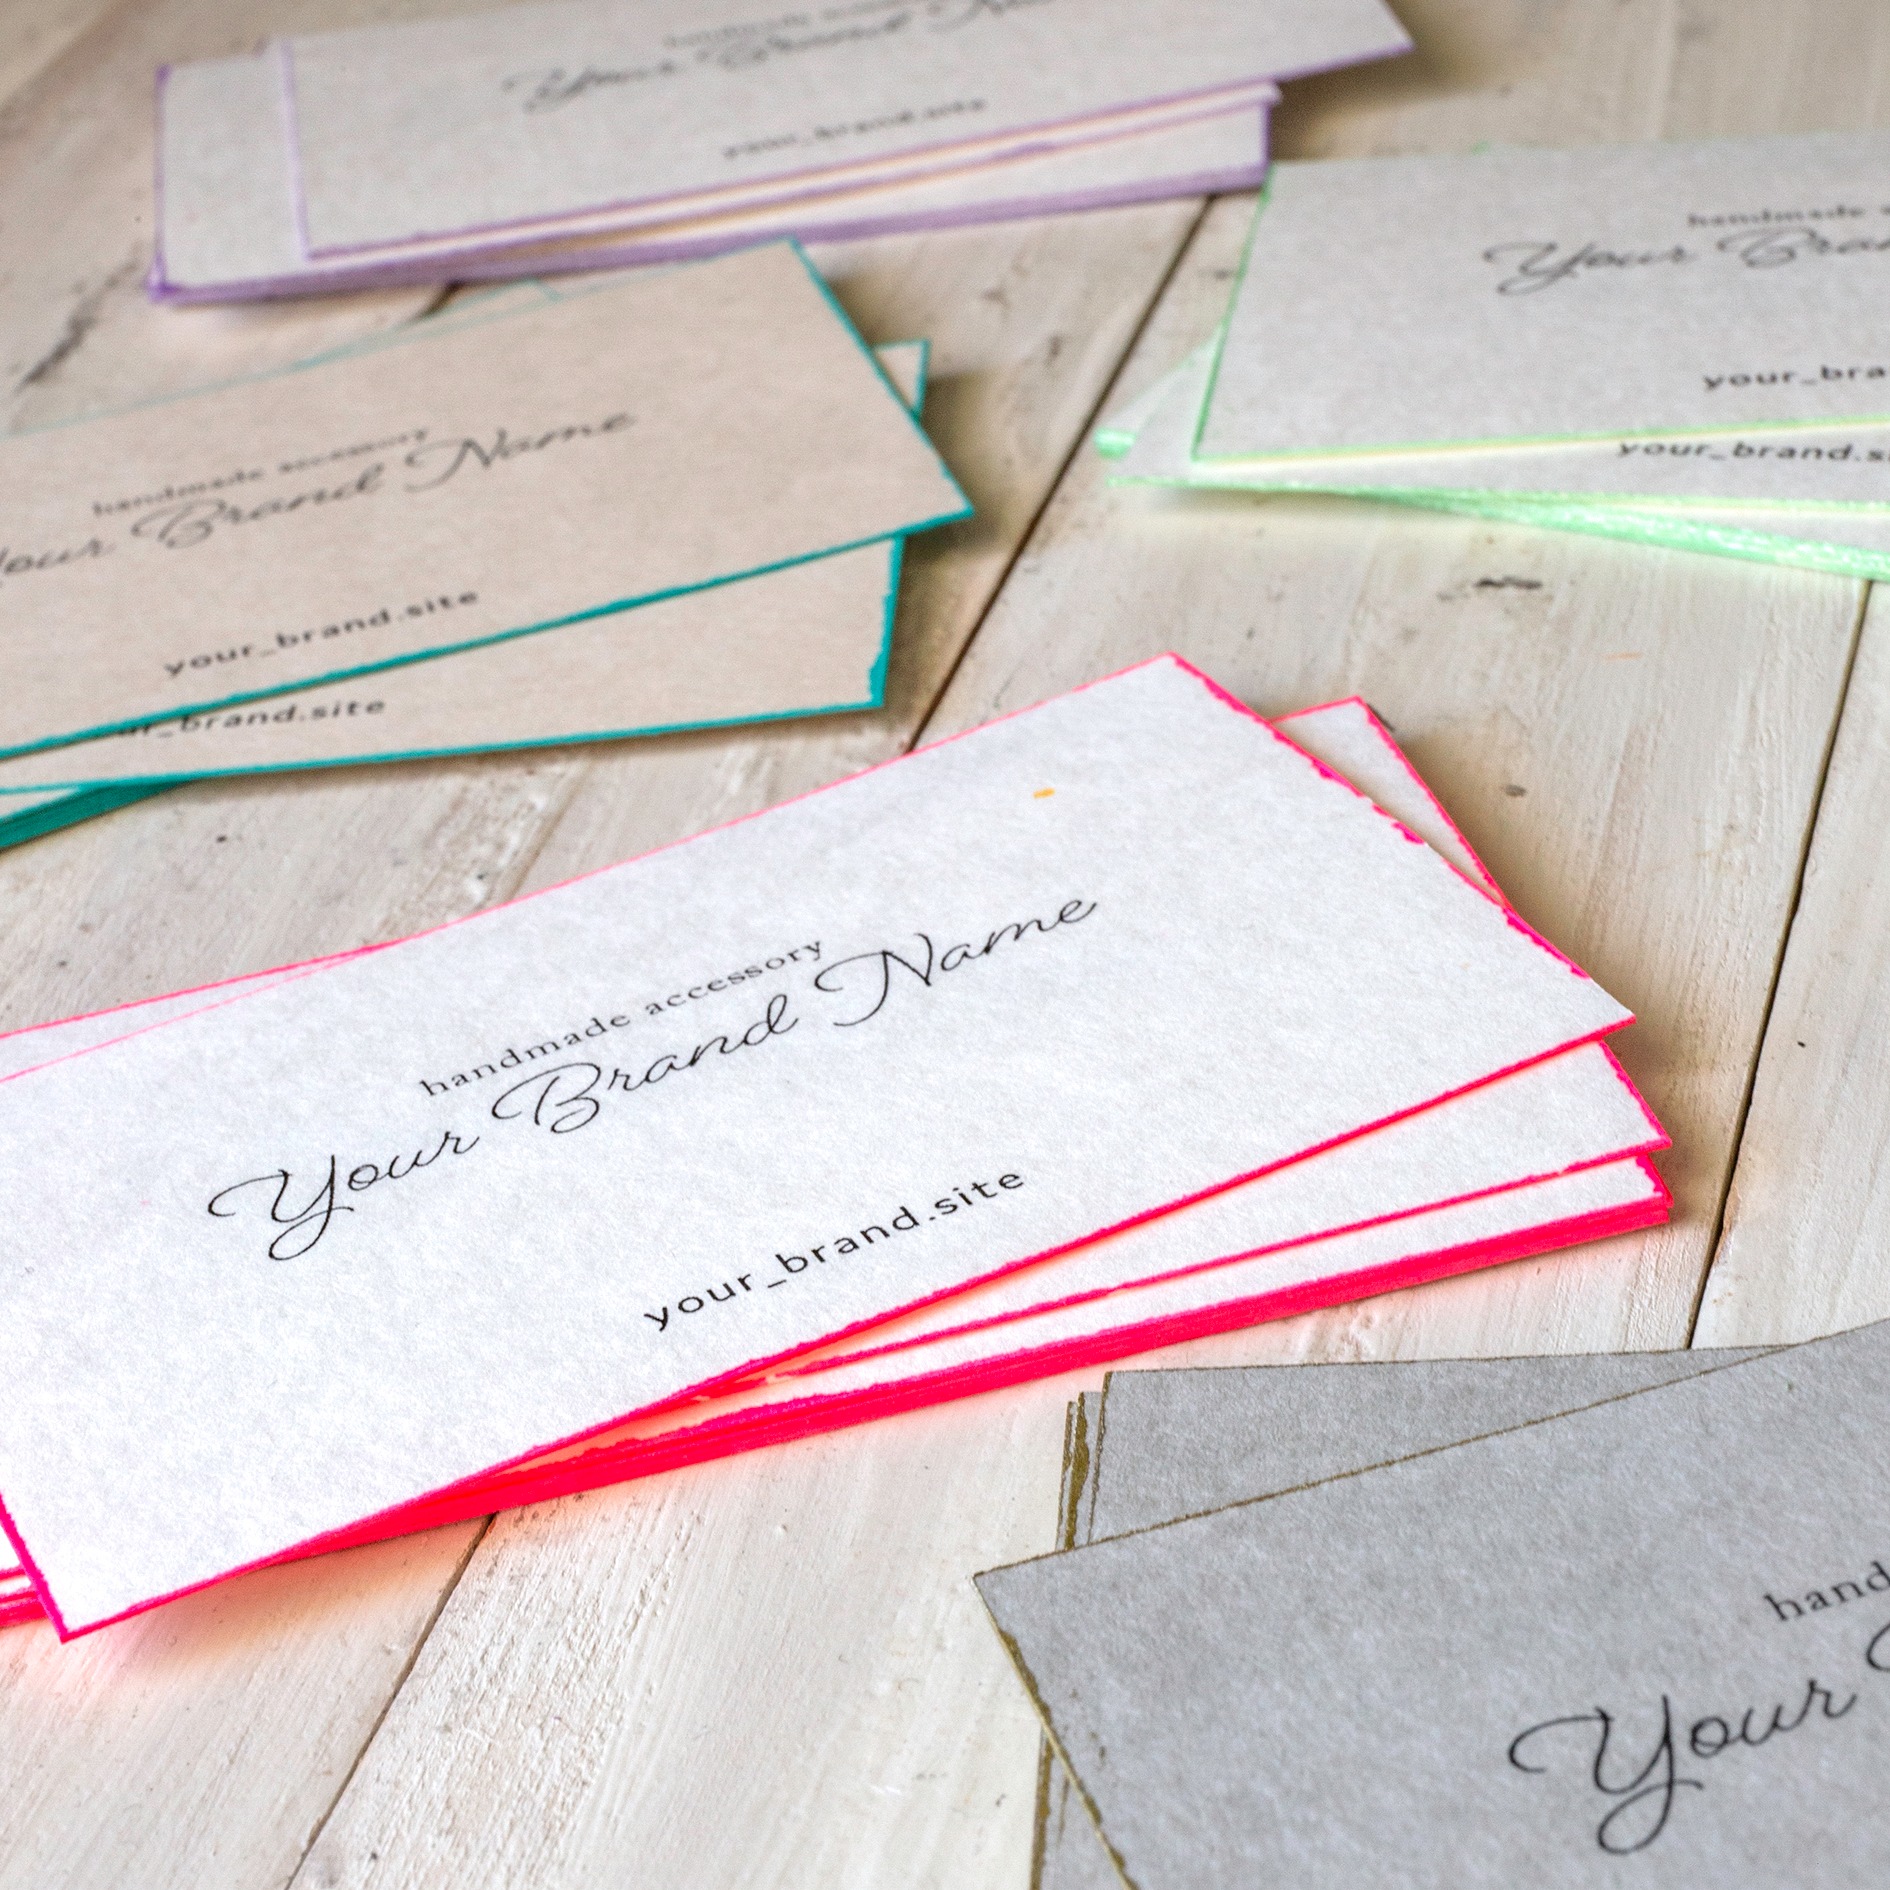 handmade
Your Brand
your_brand.site
handmade
Your
your_brand.s
handmade accessory
Your Brand Name
your_brand.site
brand.site
handmade accessory
Your Brand Name
your_brand.site
Your